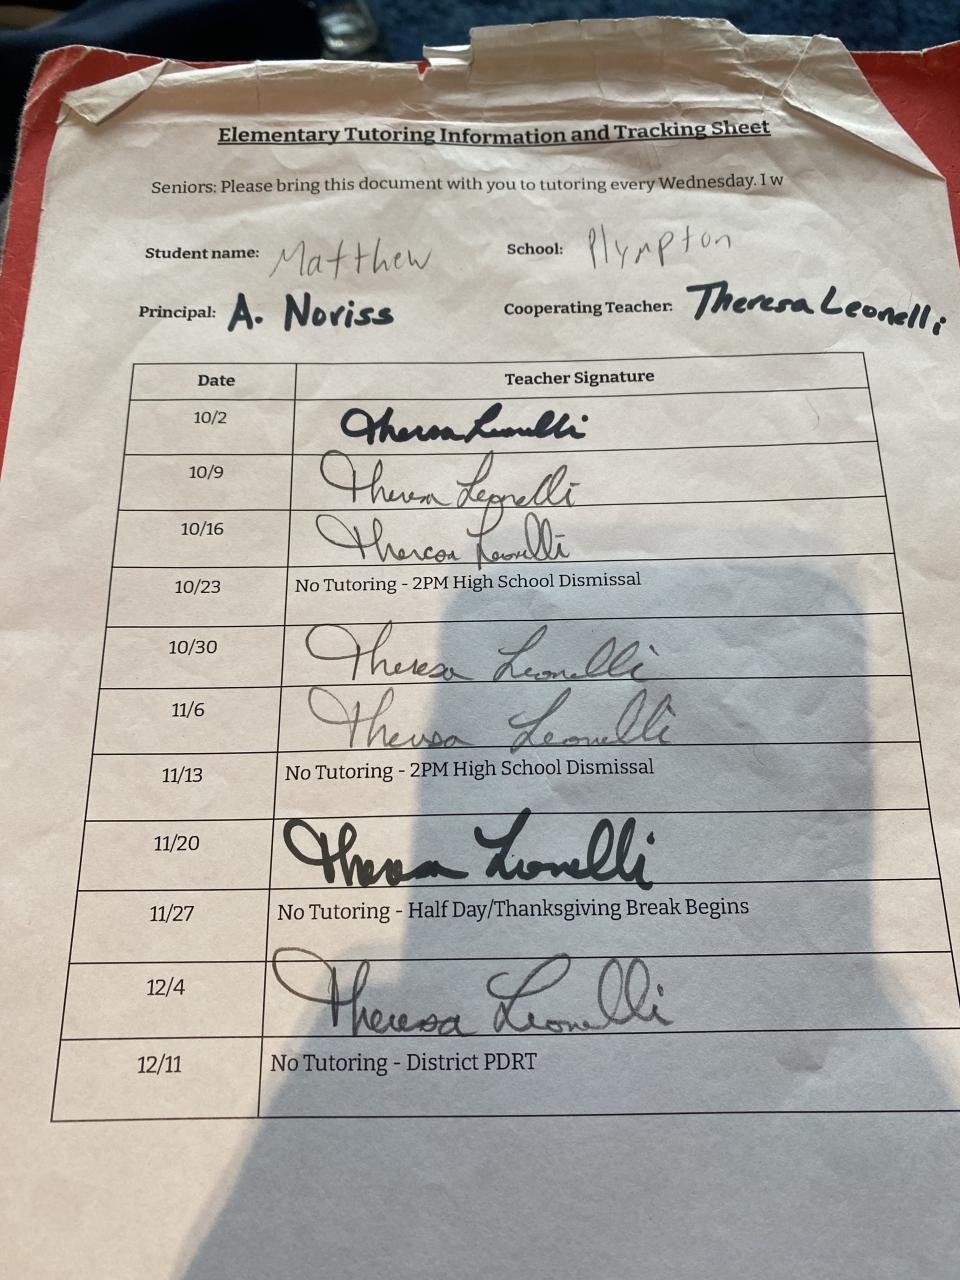 Elementary Tutoring Information and Tracking Sheet
Seniors: Please bring this document with you to tutoring every Wednesday. I w
Student name: Matthew School: Plympton
Principal: A. Noriss Cooperating Teacher: Theresa Leonelli
Date Teacher Signature
10/2 Theresa Leonelli
10/9 Theresa Leonelli
10/16 Theresa Leonelli
10/23 No Tutoring - 2PM High School Dismissal
10/30 Theresa Leonelli
11/6 Theresa Leonelli
11/13 No Tutoring - 2PM High School Dismissal
11/20 Theresa Leonelli
11/27 No Tutoring - Half Day/Thanksgiving Break Begins
12/4 Theresa Leonelli
12/11 No Tutoring - District PDRT